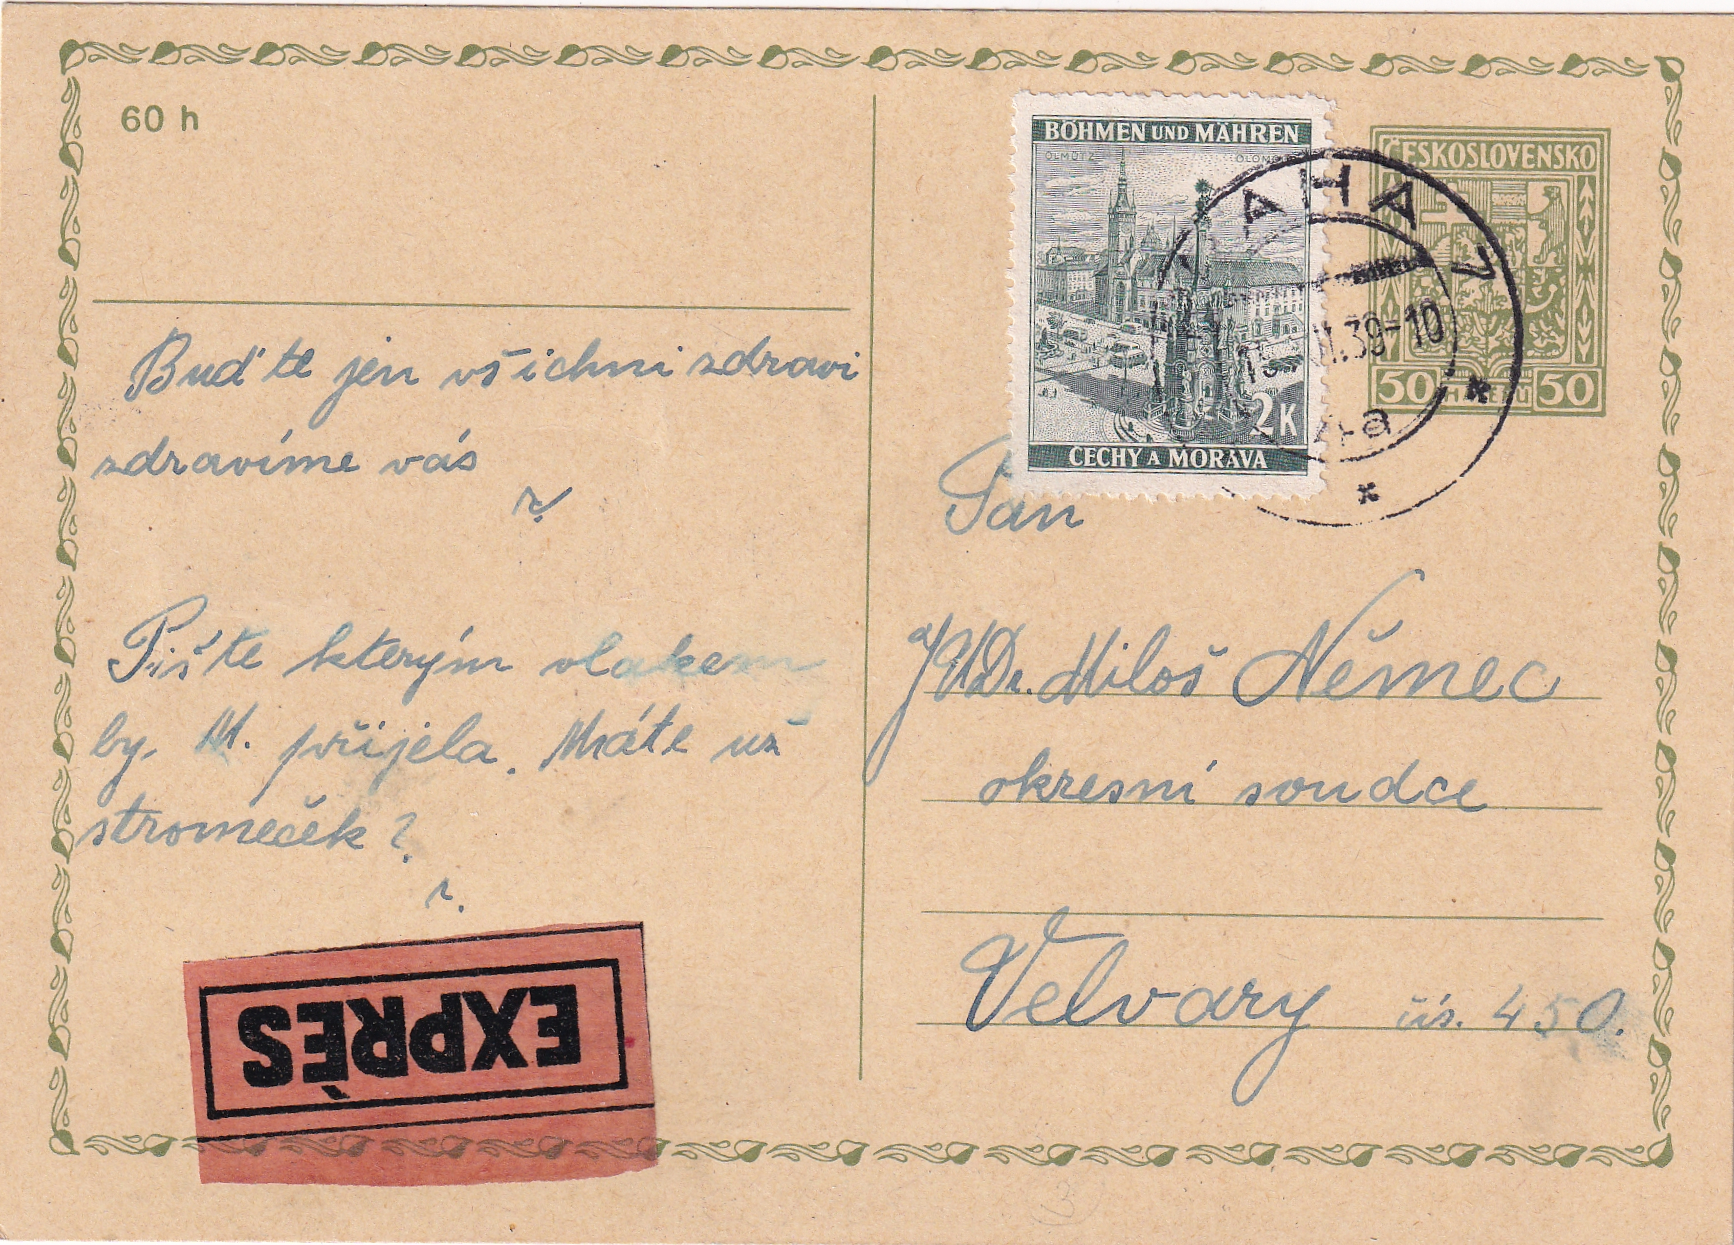 60 h
BÖHMEN UND MÄHREN
OLMÜTZ
ČESKOSLOVENSKO
AHA 7
.39-10
2K
ČECHY A MORAVA
50 HALÉŘŮ 50
Buďte jen všichni zdravi
zdravíme vás
Pište kterým vlakem
by. M. přijela. Máte už
stromeček?
r.
EXPRÈS
Pan
JUDr. Miloš Němec
okresní soudce
Velvary čís. 450.